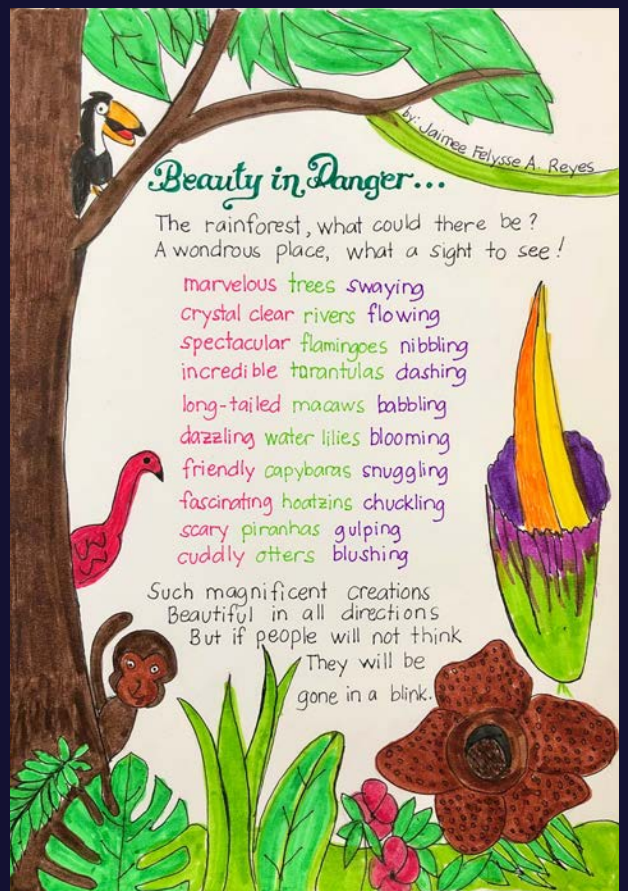 by: Jaimee Felysse A. Reyes
Beauty in Danger...
The rainforest, what could there be?
A wondrous place, what a sight to see!
marvelous trees swaying
crystal clear rivers flowing
spectacular flamingoes nibbling
incredible tarantulas dashing
long-tailed macaws babbling
dazzling water lilies blooming
friendly capybaras snuggling
fascinating hoatzins chuckling
scary piranhas gulping
cuddly otters blushing
Such magnificent creations
Beautiful in all directions
But if people will not think
They will be
gone in a blink.